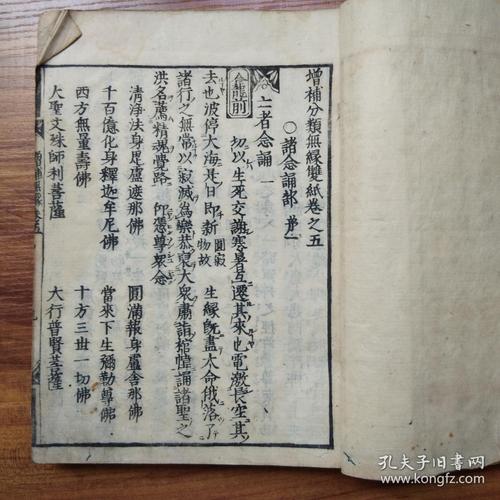 增補分類無縁雙紙卷之五
○諸念誦部 第一
亡者念誦 一
龕前
切以生死交謝寒暑互遷其來也電激長空其
去也波停大海是日即新 圓寂 物故 生縁既盡大命俄落了
諸行之無常以寂滅為樂恭裒大衆肅詣棺幃誦諸聖之
洪名薦精魂覺路 仰憑尊衆念
清淨法身毘盧遮那佛 圓滿報身盧舎那佛
千百億化身釋迦牟尼佛 當來下生彌勒尊佛
西方無量壽佛 十方三世一切佛
大聖文殊師利菩薩 大行普賢菩薩
孔夫子旧書网
www.kongfz.com